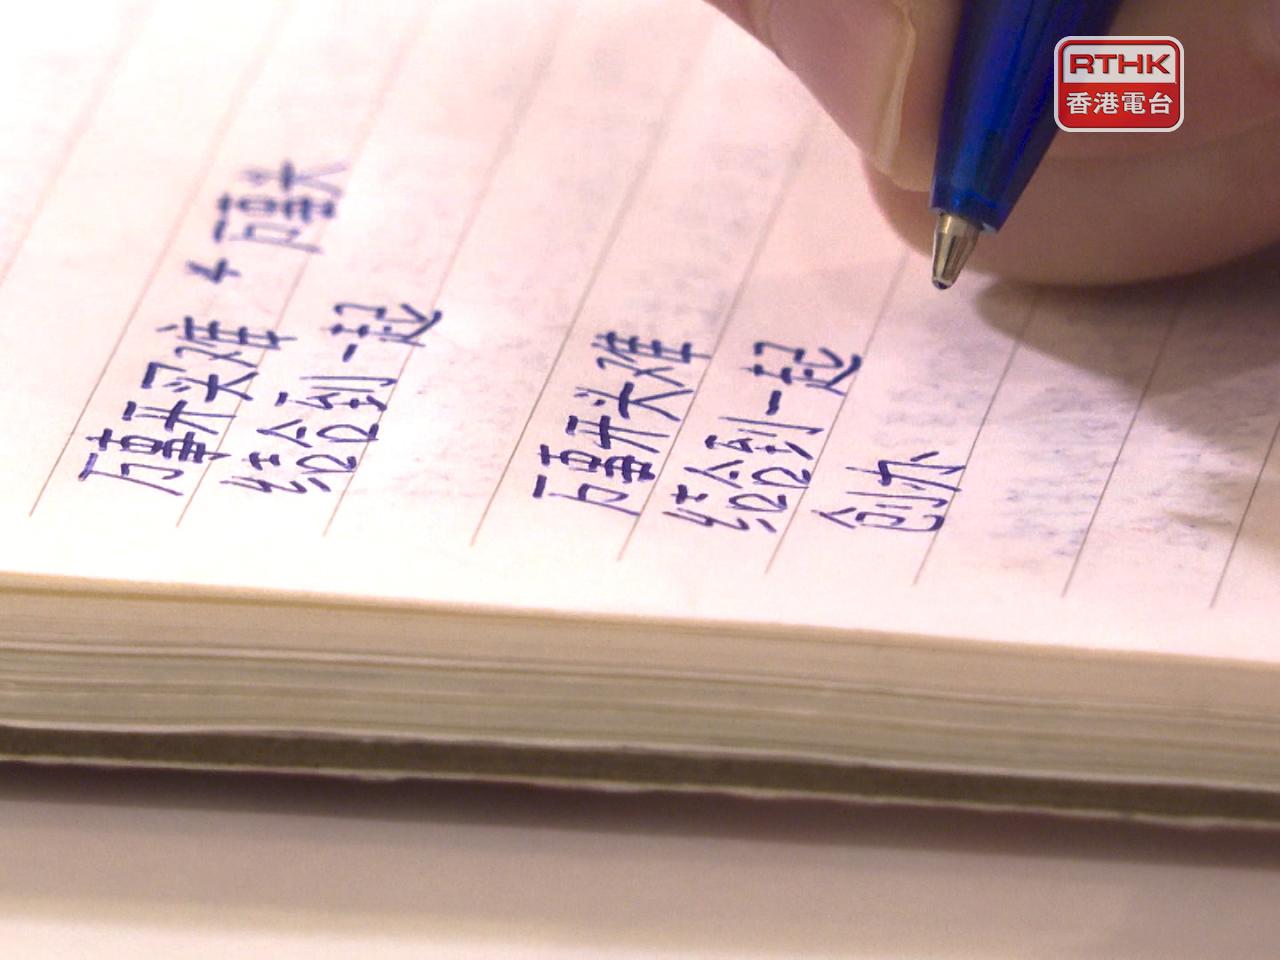 RTHK
香港電台
万事开头难 4
结合到一起
万事开头难
结合到一起
创办